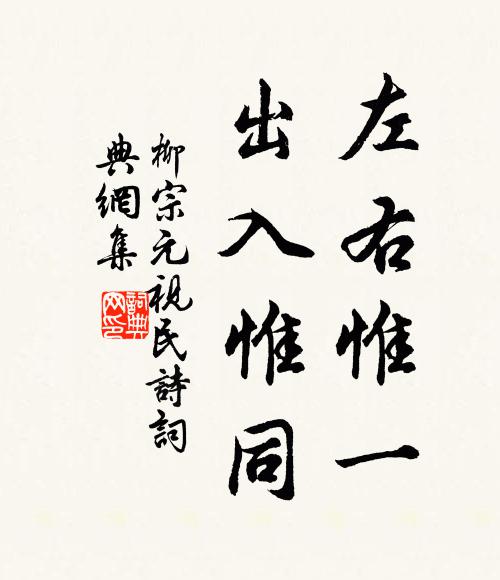 左右惟一
出入惟同
柳宗元視民詩詞
典網集
詞典
网印